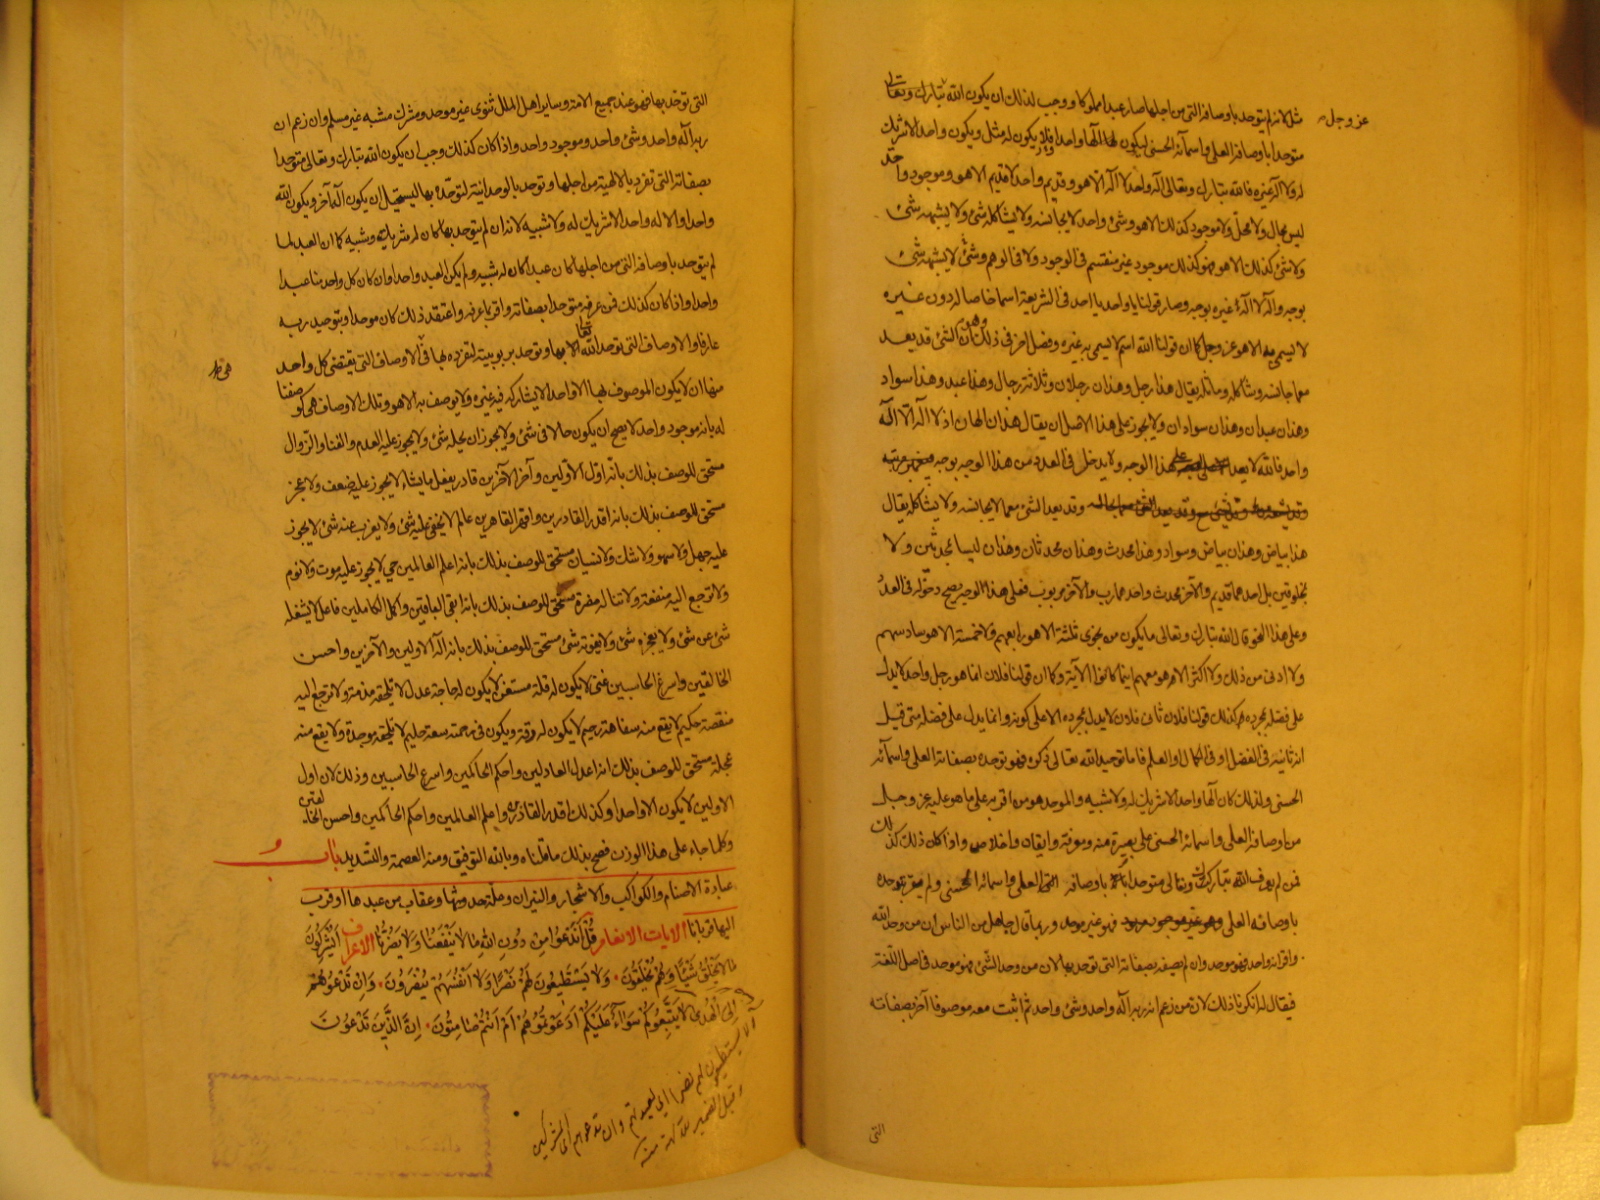 عز وجل
مثل لانه لم يتوحد باوصافه التى من اجلها صار عبدا مملوكا ووجب لذلك ان يكون الله تبارك وتعالى
متوحدا باوصافه العلى واسمائه الحسنى ليكون الها واحدا ولا يكون له مثل ويكون واحدا لا شريك
له ولا اله غيره فالله تبارك وتعالى اله واحد لا اله الا هو وقديم واحد لا قديم الا هو وموجود واحد
ليس بحال ولا محل ولا موجود كذلك الا هو وشئ واحد لا يجانسه ولا يشاكله شئ ولا يشبهه شئ
ولا شئ كذلك الا هو فهو كذلك موجود غير منقسم فى الوجود ولا فى الوهم وشئ لا يشبهه شئ
بوجه واله لا اله غيره بوجه وصار قولنا يا واحد يا احد فى الشريعة اسما خاصا له دون غيره
لا يسمى به الا هو عز وجل كما ان قولنا الله اسم لا يسمى به غيره وفصل اخر فى ذلك وهو ان الشئ قد يعد
مع ما جانسه وشاكله وماثله يقال هذا رجل وهذان رجلان وثلاثة رجال وهذا عبد وهذا سواد
وهذان عبدان وهذان سوادان ولا يجوز على هذا الاصل ان يقال هذان الهان اذ لا اله الا اله
واحد فالله لا يعد على هذا الوجه ولا يدخل فى العدد من هذا الوجه بوجه
وقد يعد الشئ مع ما لا يجانسه ولا يشاكله يقال
هذا بياض وهذان بياض وسواد وهذا محدث وهذان محدثان وهذان ليسا بمحدثين ولا
بمخلوقين بل احدهما قديم والآخر محدث واحدهما رب والآخر مربوب فعلى هذا الوجه يصح دخوله فى العدد
وعلى هذا النحو قال الله تبارك وتعالى ما يكون من نجوى ثلثة الا هو رابعهم ولا خمسة الا هو سادسهم
ولا ادنى من ذلك ولا اكثر الا هو معهم اينما كانوا الآية وكما ان قولنا فلان انما هو رجل واحد لا يدل
على فضله بمجرده كذلك قولنا فلان ثانى فلان لا يدل بمجرده الا على كونه وانما يدل على فضله متى قيل
انه ثانيه فى الفضل او فى الكمال والعلم فاما توحيد الله تعالى ذكره فهو توحده بصفاته العلى واسمائه
الحسنى ولذلك كان الها واحدا لا شريك له ولا شبيه والموحد هو من اقر به على ما هو عليه عز وجل
من اوصافه العلى واسمائه الحسنى على بصيرة منه ومعرفة وايقان واخلاص واذا كان ذلك كذلك
فمن لم يعرف الله تبارك وتعالى متوحدا باوصافه العلى واسمائه الحسنى ولم يقر بتوحده
باوصافه العلى فهو غير موحد وربما قال جاهل من الناس ان من وحد الله
واقر انه واحد فهو موحد وان لم يصفه بصفاته التى توحد بها لان من وحد الشئ فهو موحد فى اصل اللغة
فيقال له انكرنا ذلك لان من زعم ان ربه اله واحد وشئ واحد ثم اثبت معه موصوفا آخر بصفاته
التى
التى توحد بها فهو عند جميع الامة وساير اهل الملل ثنوى غير موحد ومشرك مشبه غير مسلم وان زعم ان
ربه اله واحد وشئ واحد وموجود واحد واذا كان كذلك وجب ان يكون الله تبارك وتعالى متوحدا
بصفاته التى تفرد بالالهية من اجلها وتوحد بالوحدانية لتوحده بها ليستحيل ان يكون اله آخر ويكون الله
واحدا والاله واحدا لا شريك له ولا شبيه لانه ان لم يتوحد بها كان له شريك وشبيه كما ان العبد لما
لم يتوحد باوصافه التى من اجلها كان عبدا كان له شبيه ولم يكن العبد واحدا وان كان كل واحد منا عبدا
واحدا واذا كان كذلك فمن عرفه متوحدا بصفاته واقر بما عرفه واعتقد ذلك كان موحدا وبتوحيد ربه
عارفا والاوصاف التى توحد الله تعالى بها وتوحد بربوبيته لتفرده بها هى الاوصاف التى يقتضى كل واحد
منها ان لا يكون الموصوف بها الا واحدا لا يشاركه فيه غيره ولا يوصف به الا هو وتلك الاوصاف هى كوصفنا
له بانه موجود واحد لا يصح ان يكون حالا فى شئ ولا يجوز ان يحله شئ ولا يجوز عليه العدم والفنا والزوال
مستحق للوصف بذلك بانه اول الاولين وآخر الآخرين قادر يفعل ما يشاء لا يجوز عليه ضعف ولا عجز
مستحق للوصف بذلك بانه اقدر القادرين واقهر القاهرين عالم لا يخفى عليه شئ ولا يعزب عنه شئ لا يجوز
عليه جهل ولا سهو ولا شك ولا نسيان مستحق للوصف بذلك بانه اعلم العالمين حي لا يجوز عليه موت ولا نوم
ولا ترجع اليه منفعة ولا تناله مضرة مستحق للوصف بذلك بانه ابقى الباقين واكمل الكاملين فاعل لا يشغله
شئ عن شئ ولا يعجزه شئ ولا يفوته شئ مستحق للوصف بذلك بانه اله الاولين والآخرين واحسن
الخالقين واسرع الحاسبين غنى لا يكون له قلة مستغن لا يكون له حاجة عدل لا تلحقه مذمة ولا ترجع اليه
منقصة حكيم لا يقع منه سفاهة رحيم لا يكون له رقة ويكون فى رحمته سعة حليم لا تلحقه موجدة ولا يقع منه
عجلة مستحق للوصف بذلك انه اعدل العادلين واحكم الحاكمين واسرع الحاسبين وذلك لان اول
الاولين لا يكون الا واحدا وكذلك اقدر القادرين واعلم العالمين واحكم الحاكمين واحسن الخالقين
وكلما جاء على هذا الوزن فصح بذلك ما قلناه وبالله التوفيق ومنه العصمة والتسديد باب
عبادة الاصنام والكواكب والاشجار والنيران وعلة حدوثها وعقاب من عبدها او قرب
اليها قربانا الايات الانعام قُلْ اَنَدْعُوا مِنْ دُونِ اللهِ مَا لا يَنْفَعُنَا وَلا يَضُرُّنَا الاعراف اَيُشْرِكُونَ
مَا لا يَخْلُقُ شَيْئًا وَهُمْ يُخْلَقُونَ وَلا يَسْتَطِيعُونَ لَهُمْ نَصْرًا وَلا اَنْفُسَهُمْ يَنْصُرُونَ وَاِنْ تَدْعُوهُمْ
اِلَى الْهُدى لا يَتَّبِعُوكُمْ سَوَاءٌ عَلَيْكُمْ اَدَعَوْتُمُوهُمْ اَمْ اَنْتُمْ صَامِتُونَ اِنَّ الَّذِينَ تَدْعُونَ
لا يستطيعون لهم نصرا اى لعبدتهم وان تدعوهم اى المشركين
وقيل الضمير للآلهة منه